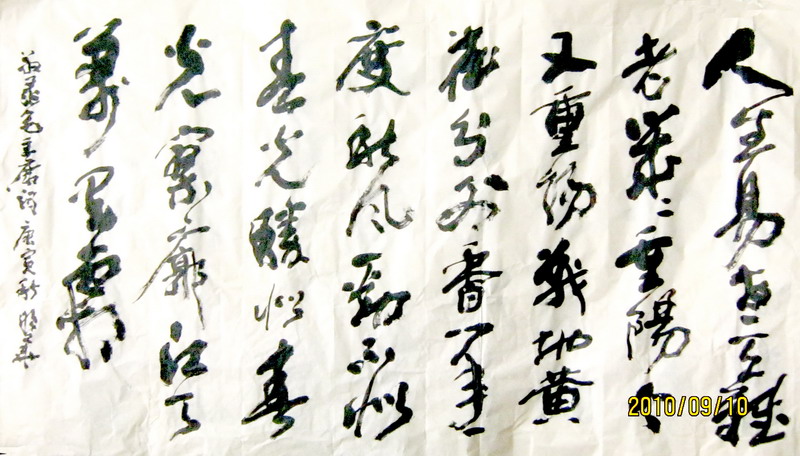 人生易老天難
老歲々重陽今
又重陽戰地黃
花分外香一年一
度秋风勁不似
春光勝似春
光寥廓江天
萬里霜
毛主席詞 庚寅秋
2010/09/10